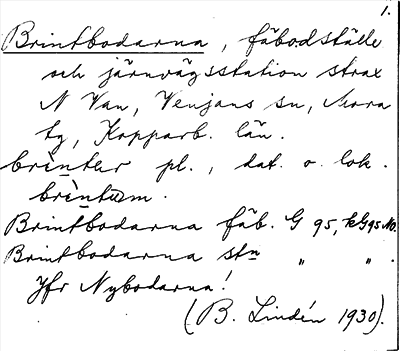 1.
Brintbodarna, fäbodställe
och järnvägsstation strax
N Van, Venjans sn, Mora
tg, Kopparb. län.
brìnter pl., dat. o. lok.
brìntom.
Brintbodarna fäb. G 95, kG95 No.
Brintbodarna stn " " .
Jfr Nybodarna!
(B. Lindén 1930).